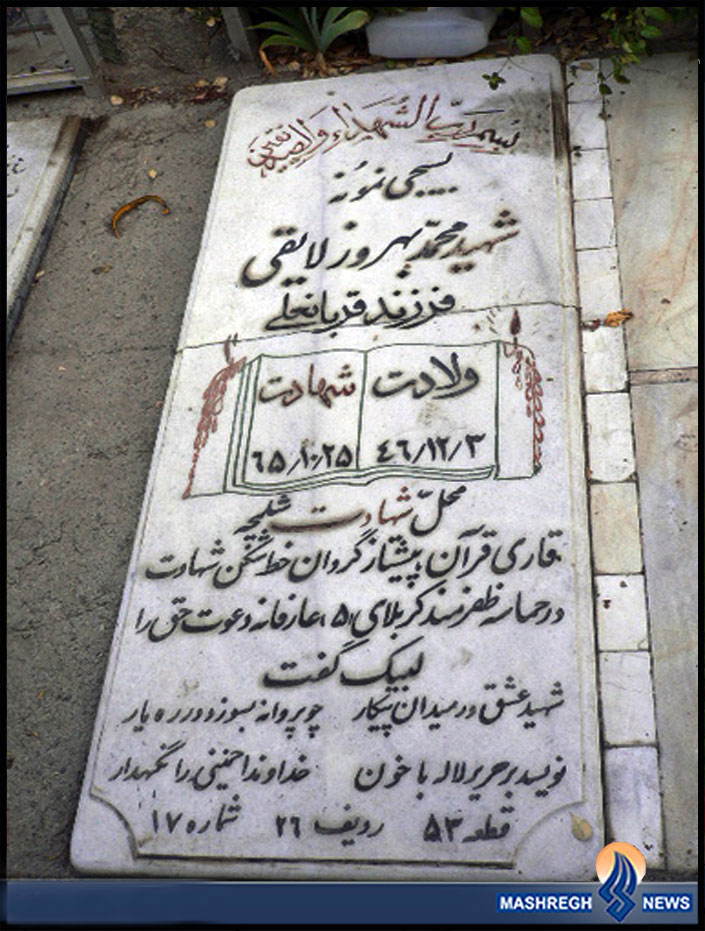 بسم رب الشهداء والصدیقین
بسیجی نمونه
شهید محمّد بهروز لایقی
فرزند قربانعلے
ولادت شهادت
۴۶/۱۲/۳ ۶۵/۱۰/۲۵
محلّ شهادت شلمچه
قاری قرآن پیشتاز گروان خط شکن شهادت
در حماسه ظفرمند کربلای (۵) عارفانه دعوت حق را
لبیک گفت
شهید عشق در میدان پیکار چو پروانه بسوزد در ره یار
نویسد بر حریر لاله با خون خداوندا خمینی را نگهدار
قطعه ۵۳ ردیف ۲۶ شماره ۱۷
MASHREGH NEWS